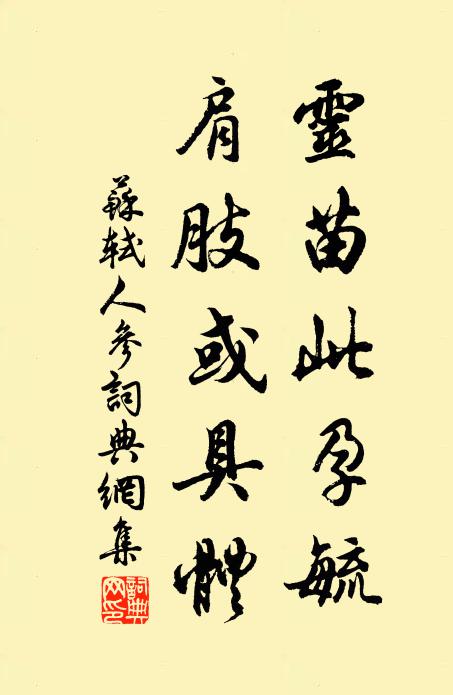 靈苗此孕毓
肩肢或具體
蘇軾人參詞典網集
詞典网印